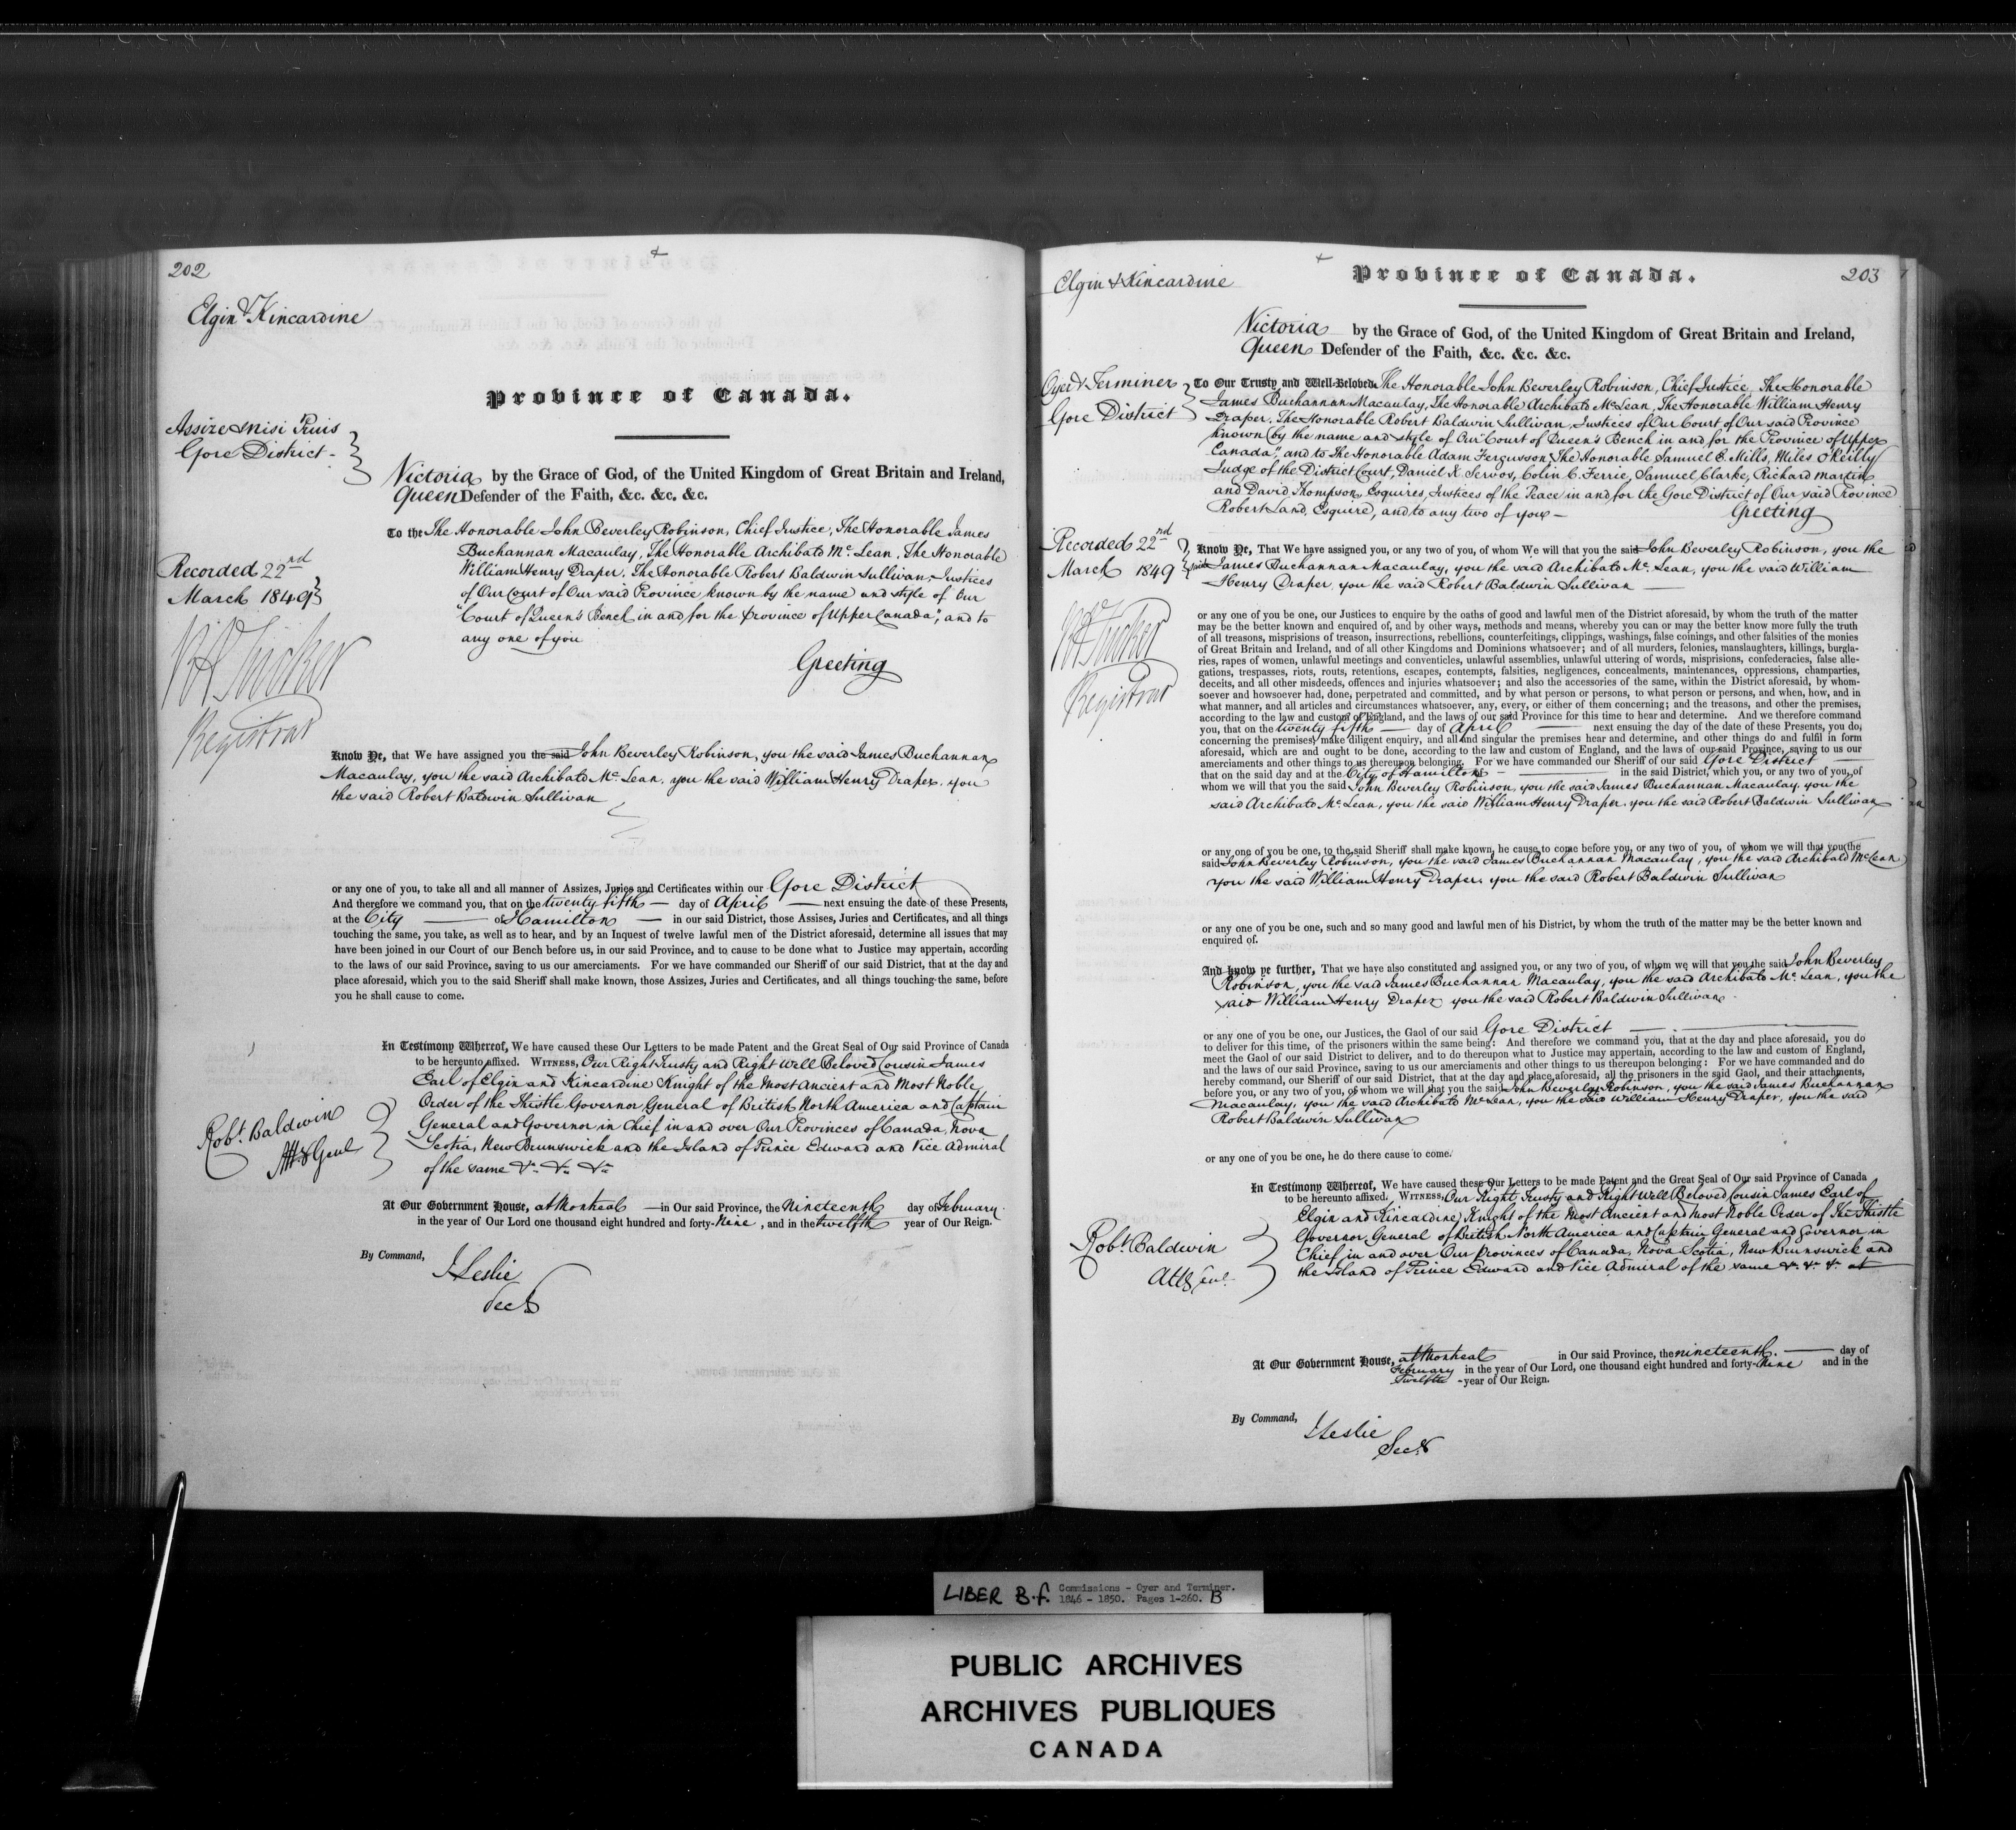 202
Elgin & Kincardine
Province of Canada.
Assize & Nisi Prius
Gore District -
Victoria by the Grace of God, of the United Kingdom of Great Britain and Ireland,
Queen Defender of the Faith, &c. &c, &c.
To the The Honorable John Beverley Robinson, Chief Justice, The Honorable James
Buchannan Macaulay, The Honorable Archibald Mc. Lean, The Honorable
William Henry Draper, The Honorable Robert Baldwin Sullivan, Justices
of Our Court of Our said Province known by the name and style of Our
"Court of Queen's Bench in and for the Province of Upper Canada", and to
any one of you
Greeting
Recorded 22nd
March 1849
Registrar
Know Ye, that We have assigned you the said John Beverley Robinson, you the said James Buchannan
Macaulay, you the said Archibald Mc. Lean, you the said William Henry Draper, you
the said Robert Baldwin Sullivan
or any one of you, to take all and all manner of Assizes, Juries and Certificates within our Gore District
And therefore we command you, that on the twenty fifth — day of April — next ensuing the date of these Presents,
at the City — of Hamilton — in our said District, those Assises, Juries and Certificates, and all things
touching the same, you take, as well as to hear, and by an Inquest of twelve lawful men of the District aforesaid, determine all issues that may
have been joined in our Court of our Bench before us, in our said Province, and to cause to be done what to Justice may appertain, according
to the laws of our said Province, saving to us our amerciaments. For we have commanded our Sheriff of our said District, that at the day and
place aforesaid, which you to the said Sheriff shall make known, those Assizes, Juries and Certificates, and all things touching the same, before
you he shall cause to come.
In Testimony Whereof, We have caused these Our Letters to be made Patent and the Great Seal of Our said Province of Canada
to be hereunto affixed. Witness, Our Right Trusty and Right Well Beloved Cousin James
Earl of Elgin and Kincardine Knight of the Most Ancient and Most Noble
Order of the Thistle Governor General of British North America and Captain
General and Governor in Chief in and over Our Provinces of Canada, Nova
Scotia, New Brunswick and the Island of Prince Edward and Vice Admiral
of the same &c &c &c
Robt. Baldwin
Atty Genl
At Our Government House, at Montreal — in Our said Province, the Nineteenth day of February
in the year of Our Lord one thousand eight hundred and forty-Nine, and in the twelfth year of Our Reign.
By Command,
J Leslie
Secy
Elgin & Kincardine
Province of Canada.
203
Victoria by the Grace of God, of the United Kingdom of Great Britain and Ireland,
Queen Defender of the Faith, &c. &c. &c.
Oyer & Terminer
Gore District
To Our Trusty and Well-Beloved The Honorable John Beverley Robinson, Chief Justice, The Honorable
James Buchannan Macaulay, The Honorable Archibald Mc Lean, The Honorable William Henry
Draper, The Honorable Robert Baldwin Sullivan, Justices of Our Court of Our said Province
known by the name and style of Our "Court of Queen's Bench in and for the Province of Upper
Canada", and to The Honorable Adam Fergusson, The Honorable Samuel B. Mills, Miles O'Reilly
Judge of the District Court, Daniel K Servos, Colin C. Ferrie, Samuel Clarke, Richard Martin
and David Thompson, Esquires, Justices of the Peace in and for the Gore District of Our said Province
Robert Land, Esquire, and to any two of you —
Greeting
Recorded 22nd
March 1849
Registrar
Know Ye, That We have assigned you, or any two of you, of whom We will that you the said John Beverley Robinson, you the
said James Buchannan Macaulay, you the said Archibald Mc. Lean, you the said William
Henry Draper, you the said Robert Baldwin Sullivan —
or any one of you be one, our Justices to enquire by the oaths of good and lawful men of the District aforesaid, by whom the truth of the matter
may be the better known and enquired of, and by other ways, methods and means, whereby you can or may the better know more fully the truth
of all treasons, misprisions of treason, insurrections, rebellions, counterfeitings, clippings, washings, false coinings, and other falsities of the monies
of Great Britain and Ireland, and of all other Kingdoms and Dominions whatsoever; and of all murders, felonies, manslaughters, killings, burgla-
ries, rapes of women, unlawful meetings and conventicles, unlawful assemblies, unlawful uttering of words, misprisions, confederacies, false alle-
gations, trespasses, riots, routs, retentions, escapes, contempts, falsities, negligences, concealments, maintenances, oppressions, champarties,
deceits, and all other misdeeds, offences and injuries whatsoever; and also the accessories of the same, within the District aforesaid, by whom-
soever and howsoever had, done, perpetrated and committed, and by what person or persons, to what person or persons, and when, how, and in
what manner, and all articles and circumstances whatsoever, any, every, or either of them concerning; and the treasons, and other the premises,
according to the law and custom of England, and the laws of our said Province for this time to hear and determine. And we therefore command
you, that on the twenty fifth — day of April — next ensuing the day of the date of these Presents, you do,
concerning the premises, make diligent enquiry, and all and singular the premises hear and determine, and other things do and fulfil in form
aforesaid, which are and ought to be done, according to the law and custom of England, and the laws of our said Province, saving to us our
amerciaments and other things to us thereupon belonging. For we have commanded our Sheriff of our said Gore District —
that on the said day and at the City of Hamilton — in the said District, which you, or any two of you, of
whom we will that you the said John Beverley Robinson, you the said James Buchannan Macaulay, you the
said Archibald Mc. Lean, you the said William Henry Draper, you the said Robert Baldwin Sullivan
or any one of you be one, to the said Sheriff shall make known, he cause to come before you, or any two of you, of whom we will that you the
said John Beverley Robinson, you the said James Buchannan Macaulay, you the said Archibald McLean
you the said William Henry Draper, you the said Robert Baldwin Sullivan
or any one of you be one, such and so many good and lawful men of his District, by whom the truth of the matter may be the better known and
enquired of.
And know ye further, That we have also constituted and assigned you, or any two of you, of whom we will that you the said John Beverley
Robinson, you the said James Buchannan Macaulay, you the said Archibald Mc. Lean, you the
said William Henry Draper you the said Robert Baldwin Sullivan
or any one of you be one, our Justices, the Gaol of our said Gore District —
to deliver for this time, of the prisoners within the same being: And therefore we command you, that at the day and place aforesaid, you do
meet the Gaol of our said District to deliver, and to do thereupon what to Justice may appertain, according to the law and custom of England,
and the laws of our said Province, saving to us our amerciaments and other things to us thereupon belonging: For we have commanded and do
hereby command, our Sheriff of our said District, that at the day and place aforesaid, all the prisoners in the said Gaol, and their attachments,
before you, or any two of you, of whom we will that you the said John Beverley Robinson, you the said James Buchannan
Macaulay, you the said Archibald Mc Lean, you the said William Henry Draper, you the said
Robert Baldwin Sullivan
or any one of you be one, he do there cause to come.
In Testimony Whereof, We have caused these Our Letters to be made Patent and the Great Seal of Our said Province of Canada
to be hereunto affixed. Witness, Our Right Trusty and Right Well Beloved Cousin James Earl of
Elgin and Kincardine, Knight of the Most Ancient and Most Noble Order of The Thistle
Governor General of British North America and Captain General and Governor in
Chief in and over Our Provinces of Canada, Nova Scotia, New Brunswick and
the Island of Prince Edward and Vice Admiral of the same &c. &c. &c. at
Robt. Baldwin
Atty Genl.
At Our Government House, at Montreal in Our said Province, the nineteenth — day of
February in the year of Our Lord, one thousand eight hundred and forty-Nine and in the
Twelfth - year of Our Reign.
By Command,
J Leslie
Secy
LIBER B.f. Commissions - Oyer and Terminer.
1846 - 1850. Pages 1-260. B
PUBLIC ARCHIVES
ARCHIVES PUBLIQUES
CANADA